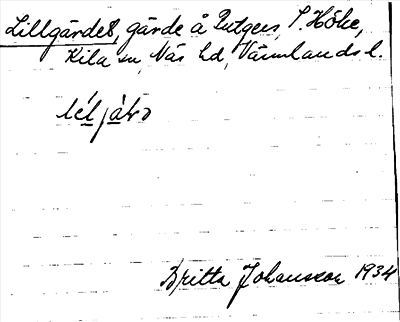 Lillgärdet, gärde å Rutgers, S. Höke,
Kila sn, Näs hd, Värmlands l.
Britta Johansson 1934